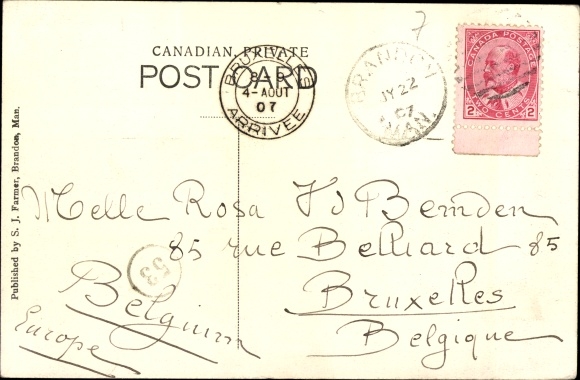 7
CANADIAN, PRIVATE
POST CARD
BRUXELLES
8-9
4-AOUT
07
ARRIVEE
BRANDON
JY 22
07
MAN
CANADA POSTAGE
2 2
TWO CENTS
Melle Rosa Vd Bemden
85 rue Belliard 85
Bruxelles
Belgique
Belgium
Europe
53
Published by S. J. Farmer, Brandon, Man.